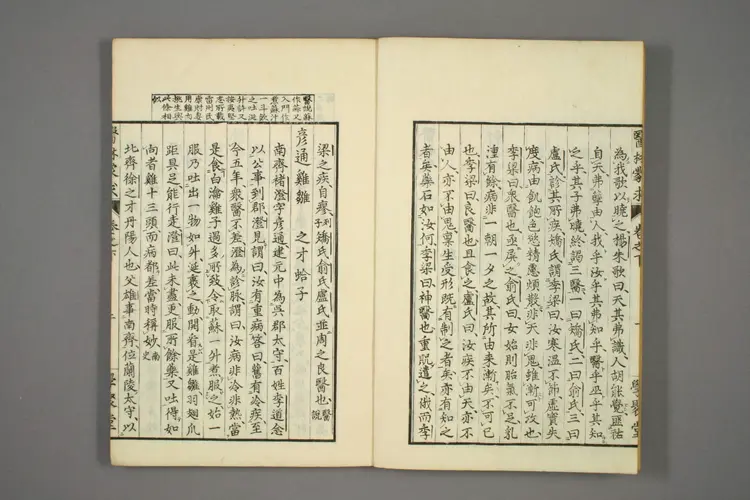 醫林蒙求 卷之下
學聚堂
為我歌以曉之楊朱歌曰天其弗識人胡能覺匪祐
自天弗孽由人我乎汝乎其弗知乎醫乎巫乎其知
之乎其子弗曉終謁三醫一曰矯氏二曰俞氏三曰
盧氏診其所疾矯氏謂季梁曰汝寒溫不節虛實失
度病由飢飽色慾精慮煩散非天非鬼雖漸可攻也
季梁曰衆醫也亟屏之俞氏曰女始則胎氣不足乳
湩有餘病非一朝一夕之故其所由來漸矣不可已
也季梁曰良醫也且食之盧氏曰汝疾不由天亦不
由人亦不由鬼稟生受形既有制之者矣亦有知之
者矣藥石如汝何季梁曰神醫也重貺遺之俄而季
梁之疾自瘳列子矯氏俞氏盧氏並周之良醫也醫說
彥通雞雛 之才蛤子
南齊褚澄字彥通建元中為吳郡太守百姓李道念
以公事到郡澄見謂曰汝有重病答曰舊有冷疾至
今五年衆醫不差澄為診脉謂曰汝病非冷非熱當
是食白瀹雞子過多所致令取蘇一升煮服之始一
服乃吐出一物如升涎裹之動開看是雞雛羽翅爪
距具足能行走澄曰此未盡更服所餘藥又吐得如
向者雞十三頭而病都差當時稱妙南史
北齊徐之才丹陽人也父雄事南齊位蘭陵太守以
醫說蘇
作蒜又
入門作
煮蘇汁
一斗飲
之吐涎
升許又